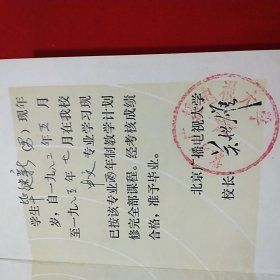 学生 新(男)现年
岁，自一九八二年五月
至一九八五年七月在我校
中文专业学习现
已按该专业三年制教学计划
修完全部课程。经考核成绩
合格，准予毕业。
北京广播电视大学
校长：